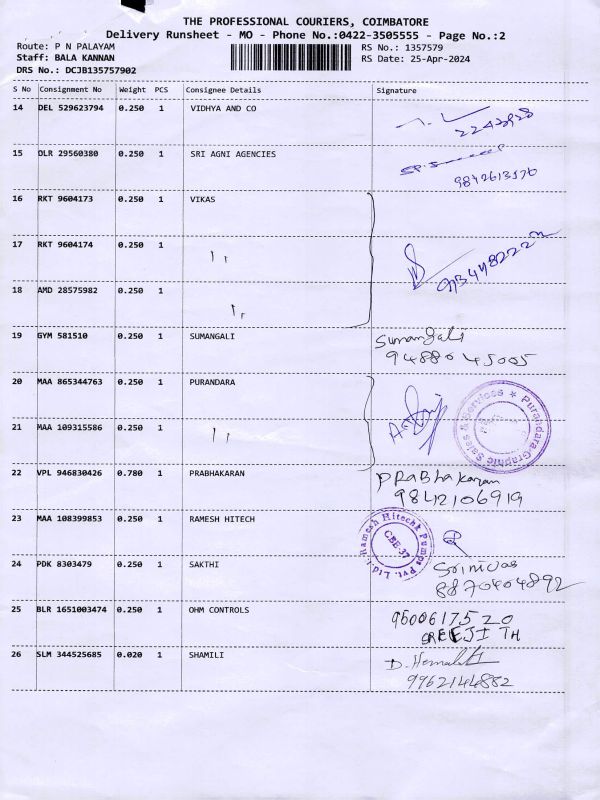 THE PROFESSIONAL COURIERS, COIMBATORE
Delivery Runsheet - MO - Phone No.:0422-3505555 - Page No.:2
Route: P N PALAYAM RS No.: 1357579
Staff: BALA KANNAN RS Date: 25-Apr-2024
DRS No.: DCJB135757902
S No Consignment No Weight PCS Consignee Details Signature
14 DEL 529623794 0.250 1 VIDHYA AND CO
15 DLR 29560380 0.250 1 SRI AGNI AGENCIES
16 RKT 9604173 0.250 1 VIKAS
17 RKT 9604174 0.250 1 ''
18 AMD 28575982 0.250 1 ''
19 GYM 581510 0.250 1 SUMANGALI Sumangali
94880 45005
20 MAA 865344763 0.250 1 PURANDARA
Purandara Graphic Sales & Services
21 MAA 109315586 0.250 1 ''
22 VPL 946830426 0.780 1 PRABHAKARAN Prabhakaran
9842106919
23 MAA 108399853 0.250 1 RAMESH HITECH
Ramesh Hitech Pumps Pvt. Ltd.
CBE-37
24 PDK 8303479 0.250 1 SAKTHI Srinivas
8870404892
25 BLR 1651003474 0.250 1 OHM CONTROLS 9500617520
SREEJITH
26 SLM 344525685 0.020 1 SHAMILI D. Hemalatha
9962144882